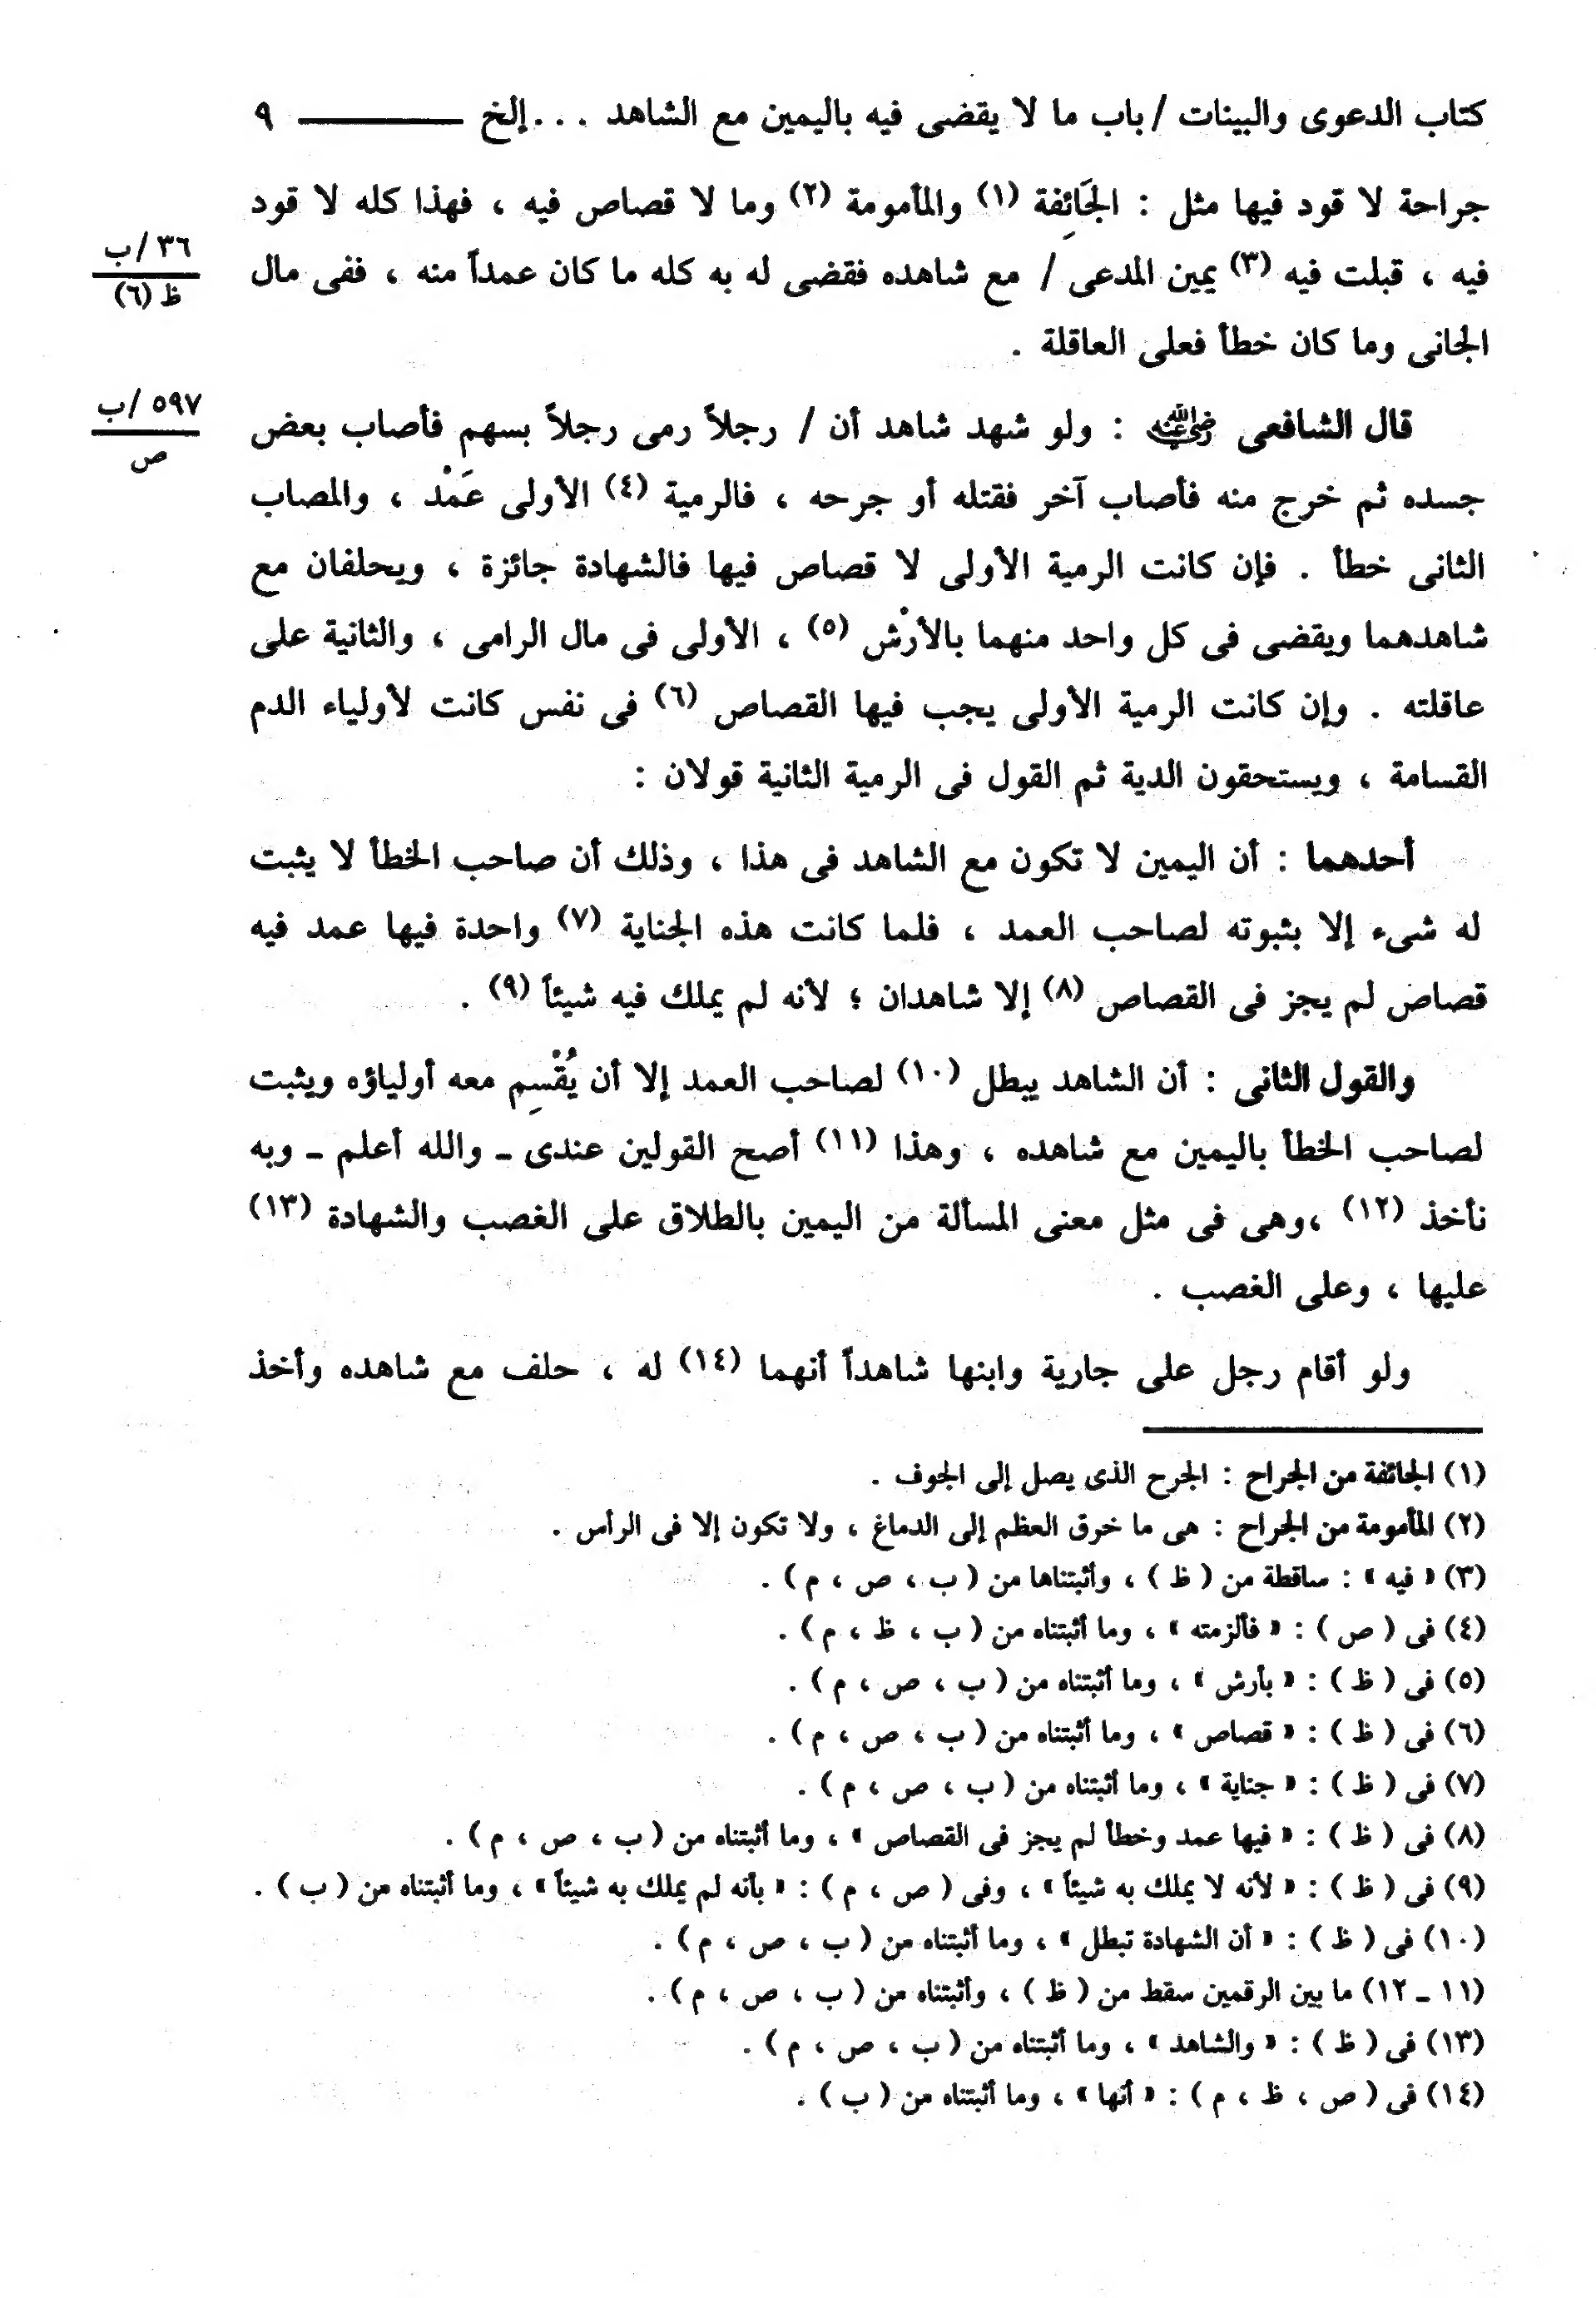 كتاب الدعوى والبينات / باب ما لا يقضى فيه باليمين مع الشاهد . . . إلخ ــــــــ ٩
جراحة لا قود فيها مثل : الجَائِفة (١) والمأمومة (٢) وما لا قصاص فيه ، فهذا كله لا قود
٣٦ /ب
ظ (٦)
فيه ، قبلت فيه (٣) يمين المدعى / مع شاهده فقضى له به كله ما كان عمداً منه ، ففى مال
الجانى وما كان خطأ فعلى العاقلة .
٥٩٧ /ب
ص
قال الشافعى رضي الله عنه : ولو شهد شاهد أن / رجلاً رمى رجلاً بسهم فأصاب بعض
جسده ثم خرج منه فأصاب آخر فقتله أو جرحه ، فالرمية (٤) الأولى عَمْد ، والمصاب
الثانى خطأ . فإن كانت الرمية الأولى لا قصاص فيها فالشهادة جائزة ، ويحلفان مع
شاهدهما ويقضى فى كل واحد منهما بالأرْش (٥) ، الأولى فى مال الرامى ، والثانية على
عاقلته . وإن كانت الرمية الأولى يجب فيها القصاص (٦) فى نفس كانت لأولياء الدم
القسامة ، ويستحقون الدية ثم القول فى الرمية الثانية قولان :
أحدهما : أن اليمين لا تكون مع الشاهد فى هذا ، وذلك أن صاحب الخطأ لا يثبت
له شىء إلا بثبوته لصاحب العمد ، فلما كانت هذه الجناية (٧) واحدة فيها عمد فيه
قصاص لم يجز فى القصاص (٨) إلا شاهدان ؛ لأنه لم يملك فيه شيئاً (٩) .
والقول الثانى : أن الشاهد يبطل (١٠) لصاحب العمد إلا أن يُقْسِم معه أولياؤه ويثبت
لصاحب الخطأ باليمين مع شاهده ، وهذا (١١) أصح القولين عندى ـ والله أعلم ـ وبه
نأخذ (١٢) ،وهى فى مثل معنى المسألة من اليمين بالطلاق على الغصب والشهادة (١٣)
عليها ، وعلى الغصب .
ولو أقام رجل على جارية وابنها شاهداً أنهما (١٤) له ، حلف مع شاهده وأخذ
(١) الجائفة من الجراح : الجرح الذى يصل إلى الجوف .
(٢) المأمومة من الجراح : هى ما خرق العظم إلى الدماغ ، ولا تكون إلا فى الرأس .
(٣) « فيه » : ساقطة من ( ظ ) ، وأثبتناها من ( ب ، ص ، م ) .
(٤) فى ( ص ) : « فألزمته » ، وما أثبتناه من ( ب ، ظ ، م ) .
(٥) فى ( ظ ) : « بأرش » ، وما أثبتناه من ( ب ، ص ، م ) .
(٦) فى ( ظ ) : « قصاص » ، وما أثبتناه من ( ب ، ص ، م ) .
(٧) فى ( ظ ) : « جناية » ، وما أثبتناه من ( ب ، ص ، م ) .
(٨) فى ( ظ ) : « فيها عمد وخطأ لم يجز فى القصاص » ، وما أثبتناه من ( ب ، ص ، م ) .
(٩) فى ( ظ ) : « لأنه لا يملك به شيئاً » ، وفى ( ص ، م ) : « بأنه لم يملك به شيئاً » ، وما أثبتناه من ( ب ) .
(١٠) فى ( ظ ) : « أن الشهادة تبطل » ، وما أثبتناه من ( ب ، ص ، م ) .
(١١ ـ ١٢) ما بين الرقمين سقط من ( ظ ) ، وأثبتناه من ( ب ، ص ، م ) .
(١٣) فى ( ظ ) : « والشاهد » ، وما أثبتناه من ( ب ، ص ، م ) .
(١٤) فى ( ص ، ظ ، م ) : « أنها » ، وما أثبتناه من ( ب ) .